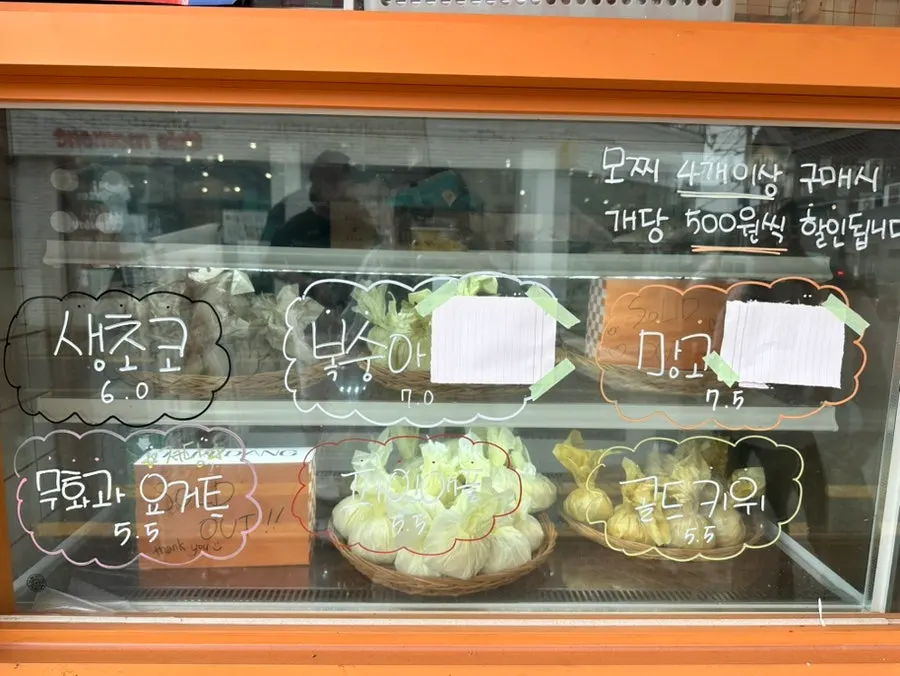 모찌 4개이상 구매시
개당 500원씩 할인됩니다
생초코
6.0
복숭아
7.0
망고
7.5
SOLD
무화과 요거트
5.5
OUT!!
thank you
파인애플
5.5
골드키위
5.5